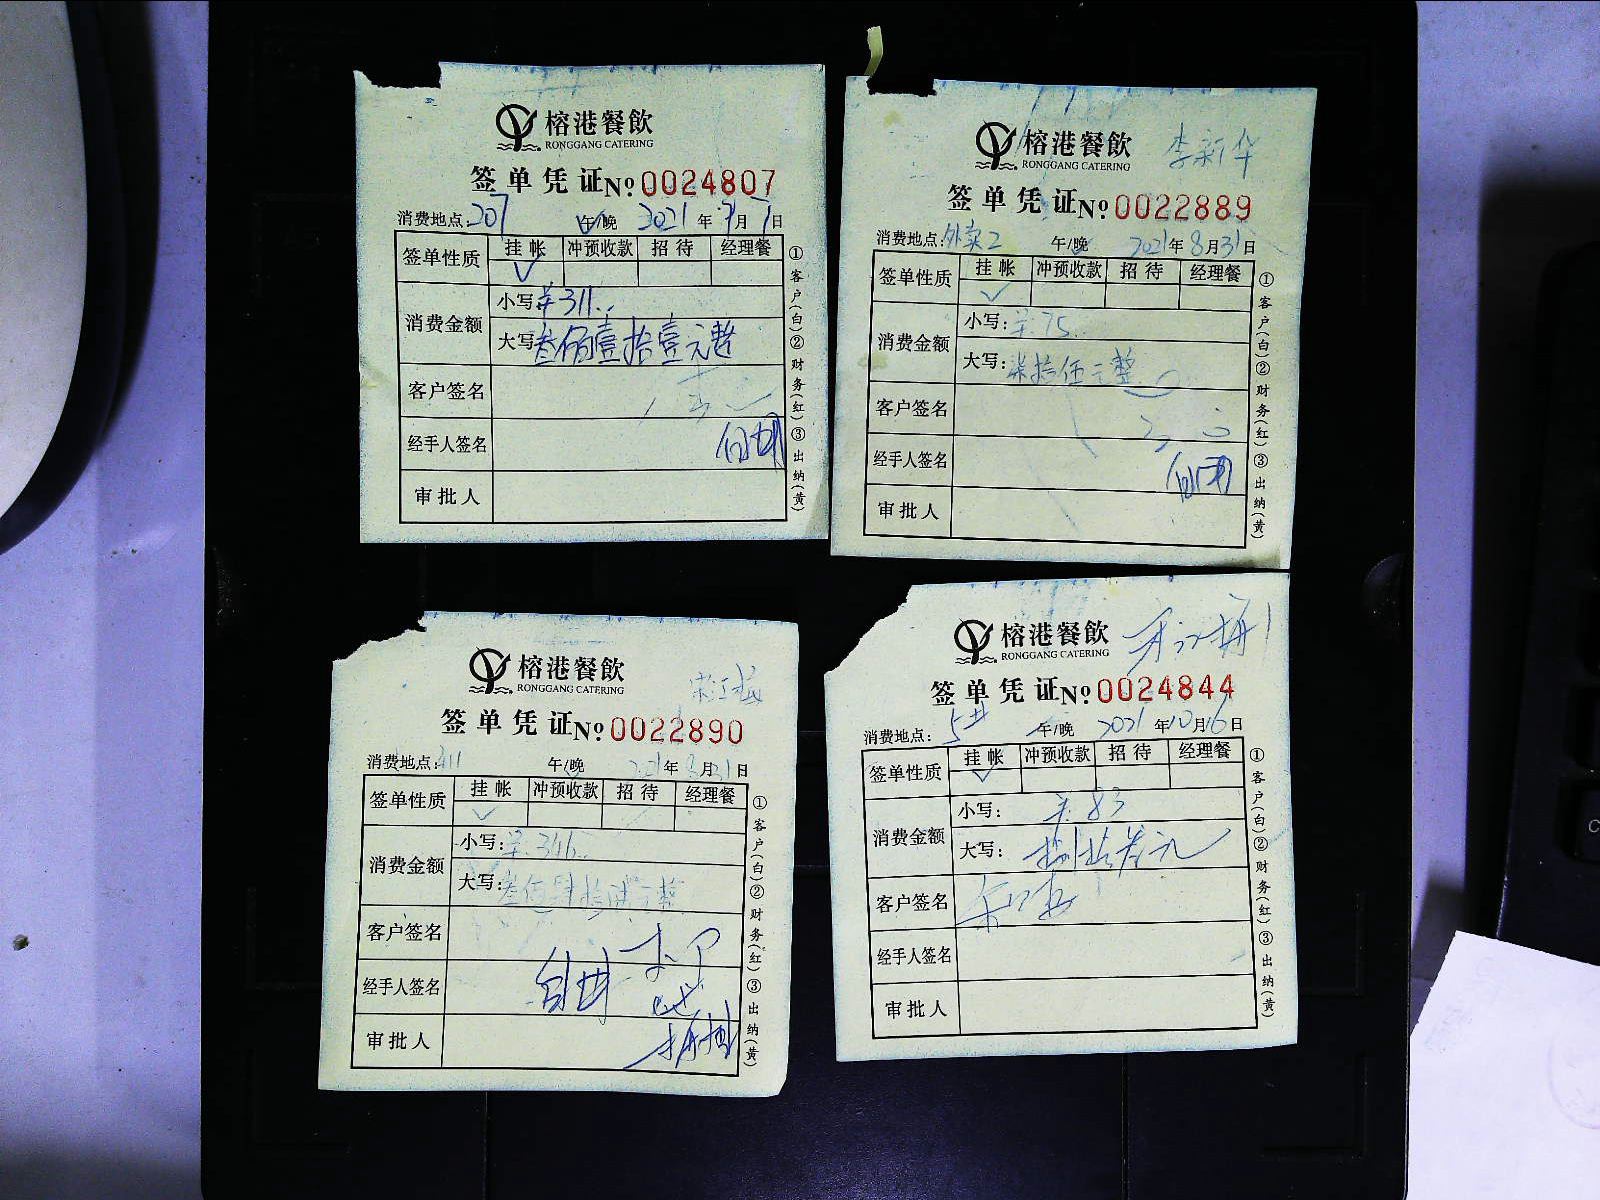 榕港餐飲
RONGGANG CATERING
签单凭证 No 0024807
消费地点:207 午/晚 2021年9月7日
签单性质 挂帐 冲预收款 招待 经理餐
✓
消费金额 小写 ¥311..
大写 叁佰壹拾壹元整
客户签名
经手人签名
审批人
①客户(白)②财务(红)③出纳(黄)
榕港餐飲 李新华
RONGGANG CATERING
签单凭证 No 0022889
消费地点:外卖2 午/晚 2021年8月31日
签单性质 挂帐 冲预收款 招待 经理餐
✓
消费金额 小写:¥75..
大写:柒拾伍元整
客户签名
经手人签名
审批人
①客户(白)②财务(红)③出纳(黄)
榕港餐飲
RONGGANG CATERING
签单凭证 No 0022890
消费地点:311 午/晚 2021年8月31日
签单性质 挂帐 冲预收款 招待 经理餐
✓
消费金额 小写:¥346..
大写:叁佰肆拾陆元整
客户签名
经手人签名
审批人
①客户(白)②财务(红)③出纳(黄)
榕港餐飲
RONGGANG CATERING
签单凭证 No 0024844
消费地点:5# 午/晚 2021年10月16日
签单性质 挂帐 冲预收款 招待 经理餐
✓
消费金额 小写:¥83
大写:捌拾叁元
客户签名
经手人签名
审批人
①客户(白)②财务(红)③出纳(黄)